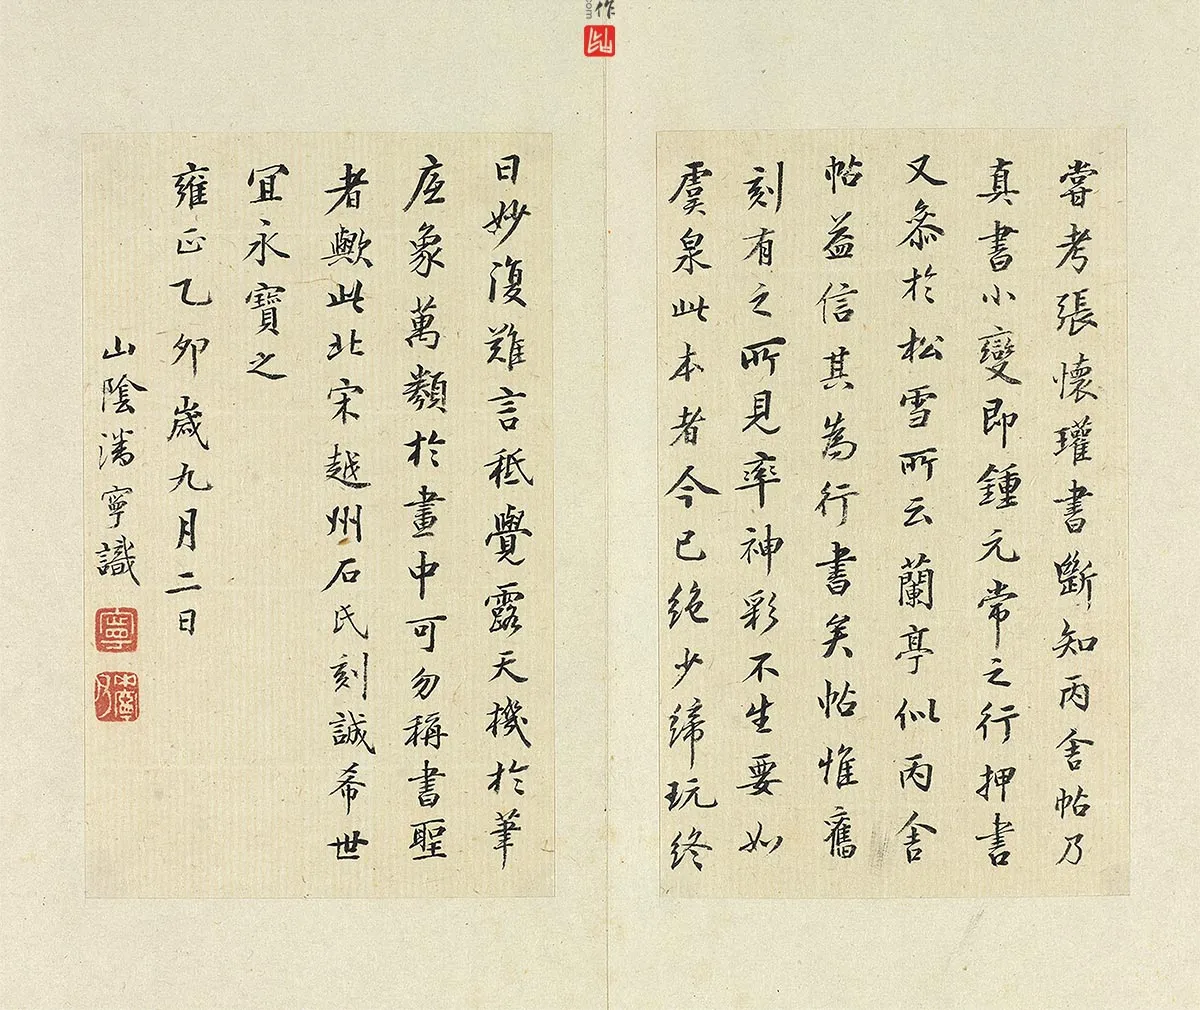 嘗考張懷瓘書斷知丙舍帖乃
真書小變即鍾元常之行押書
又叅於松雪所云蘭亭似丙舍
帖益信其為行書矣帖惟舊
刻有之所見率神彩不生要如
虞泉此本者今已絶少締玩終
日妙復難言秪覺露天機於筆
底象萬類於畫中可勿稱書聖
者歟此北宋越州石氏刻誠希世
宜永寶之
雍正乙卯歲九月二日
山陰潘寧識
寧
作
com